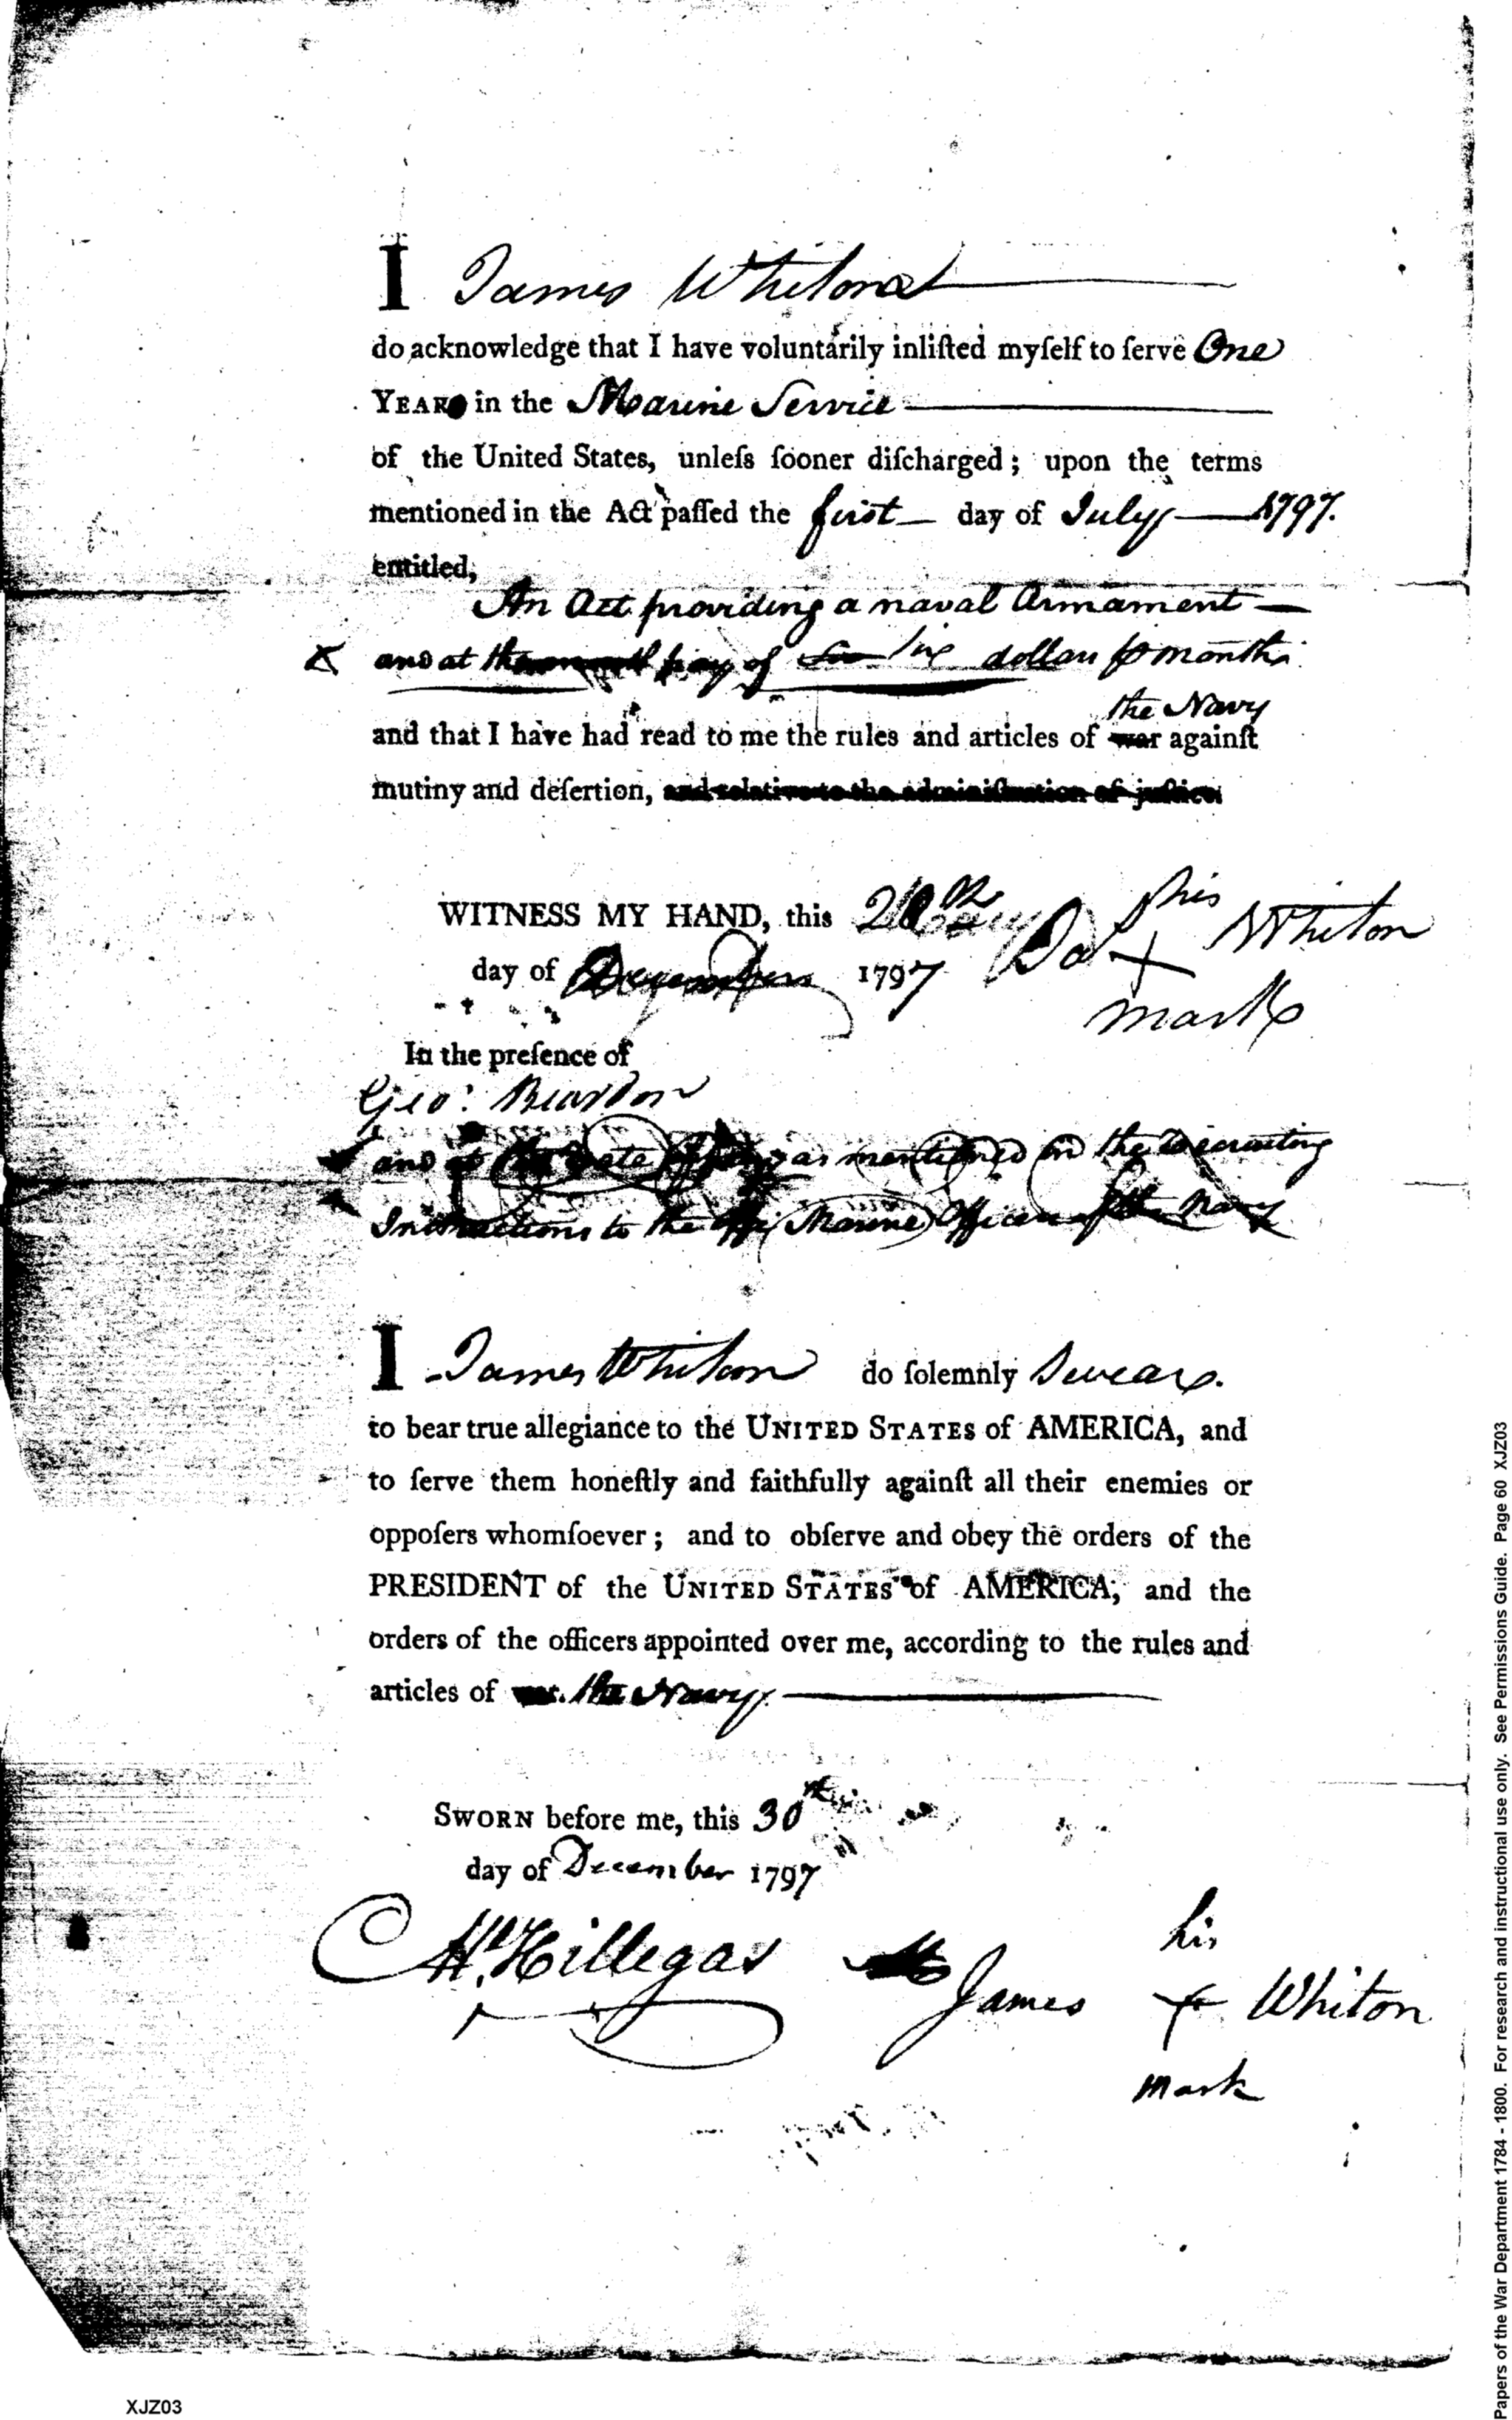 I James Whiton
do acknowledge that I have voluntarily inliſted myſelf to ſerve One
YEAR in the Marine Service
of the United States, unleſs ſooner diſcharged; upon the terms
mentioned in the Act paſſed the first day of July 1797.
entitled,
An Act providing a naval Armament
and at the pay of six dollars p month
the Navy
and that I have had read to me the rules and articles of war againſt
mutiny and deſertion, and relative to the adminiſtration of juſtice.
his
WITNESS MY HAND, this Whiton
day of December 1797
mark
In the preſence of
Geo:
and at as mentioned in the recruiting
Instructions to the Marine Officers of the Navy
I James Whiton do ſolemnly Swear.
to bear true allegiance to the UNITED STATES of AMERICA, and
to ſerve them honeſtly and faithfully againſt all their enemies or
oppoſers whomſoever; and to obſerve and obey the orders of the
PRESIDENT of the UNITED STATES of AMERICA, and the
orders of the officers appointed over me, according to the rules and
articles of war. the Navy.
SWORN before me, this 30th
day of December 1797
his
Ml. Hillegas James + Whiton
mark
XJZ03
Papers of the War Department 1784 - 1800. For research and instructional use only. See Permissions Guide. Page 60 XJZ03